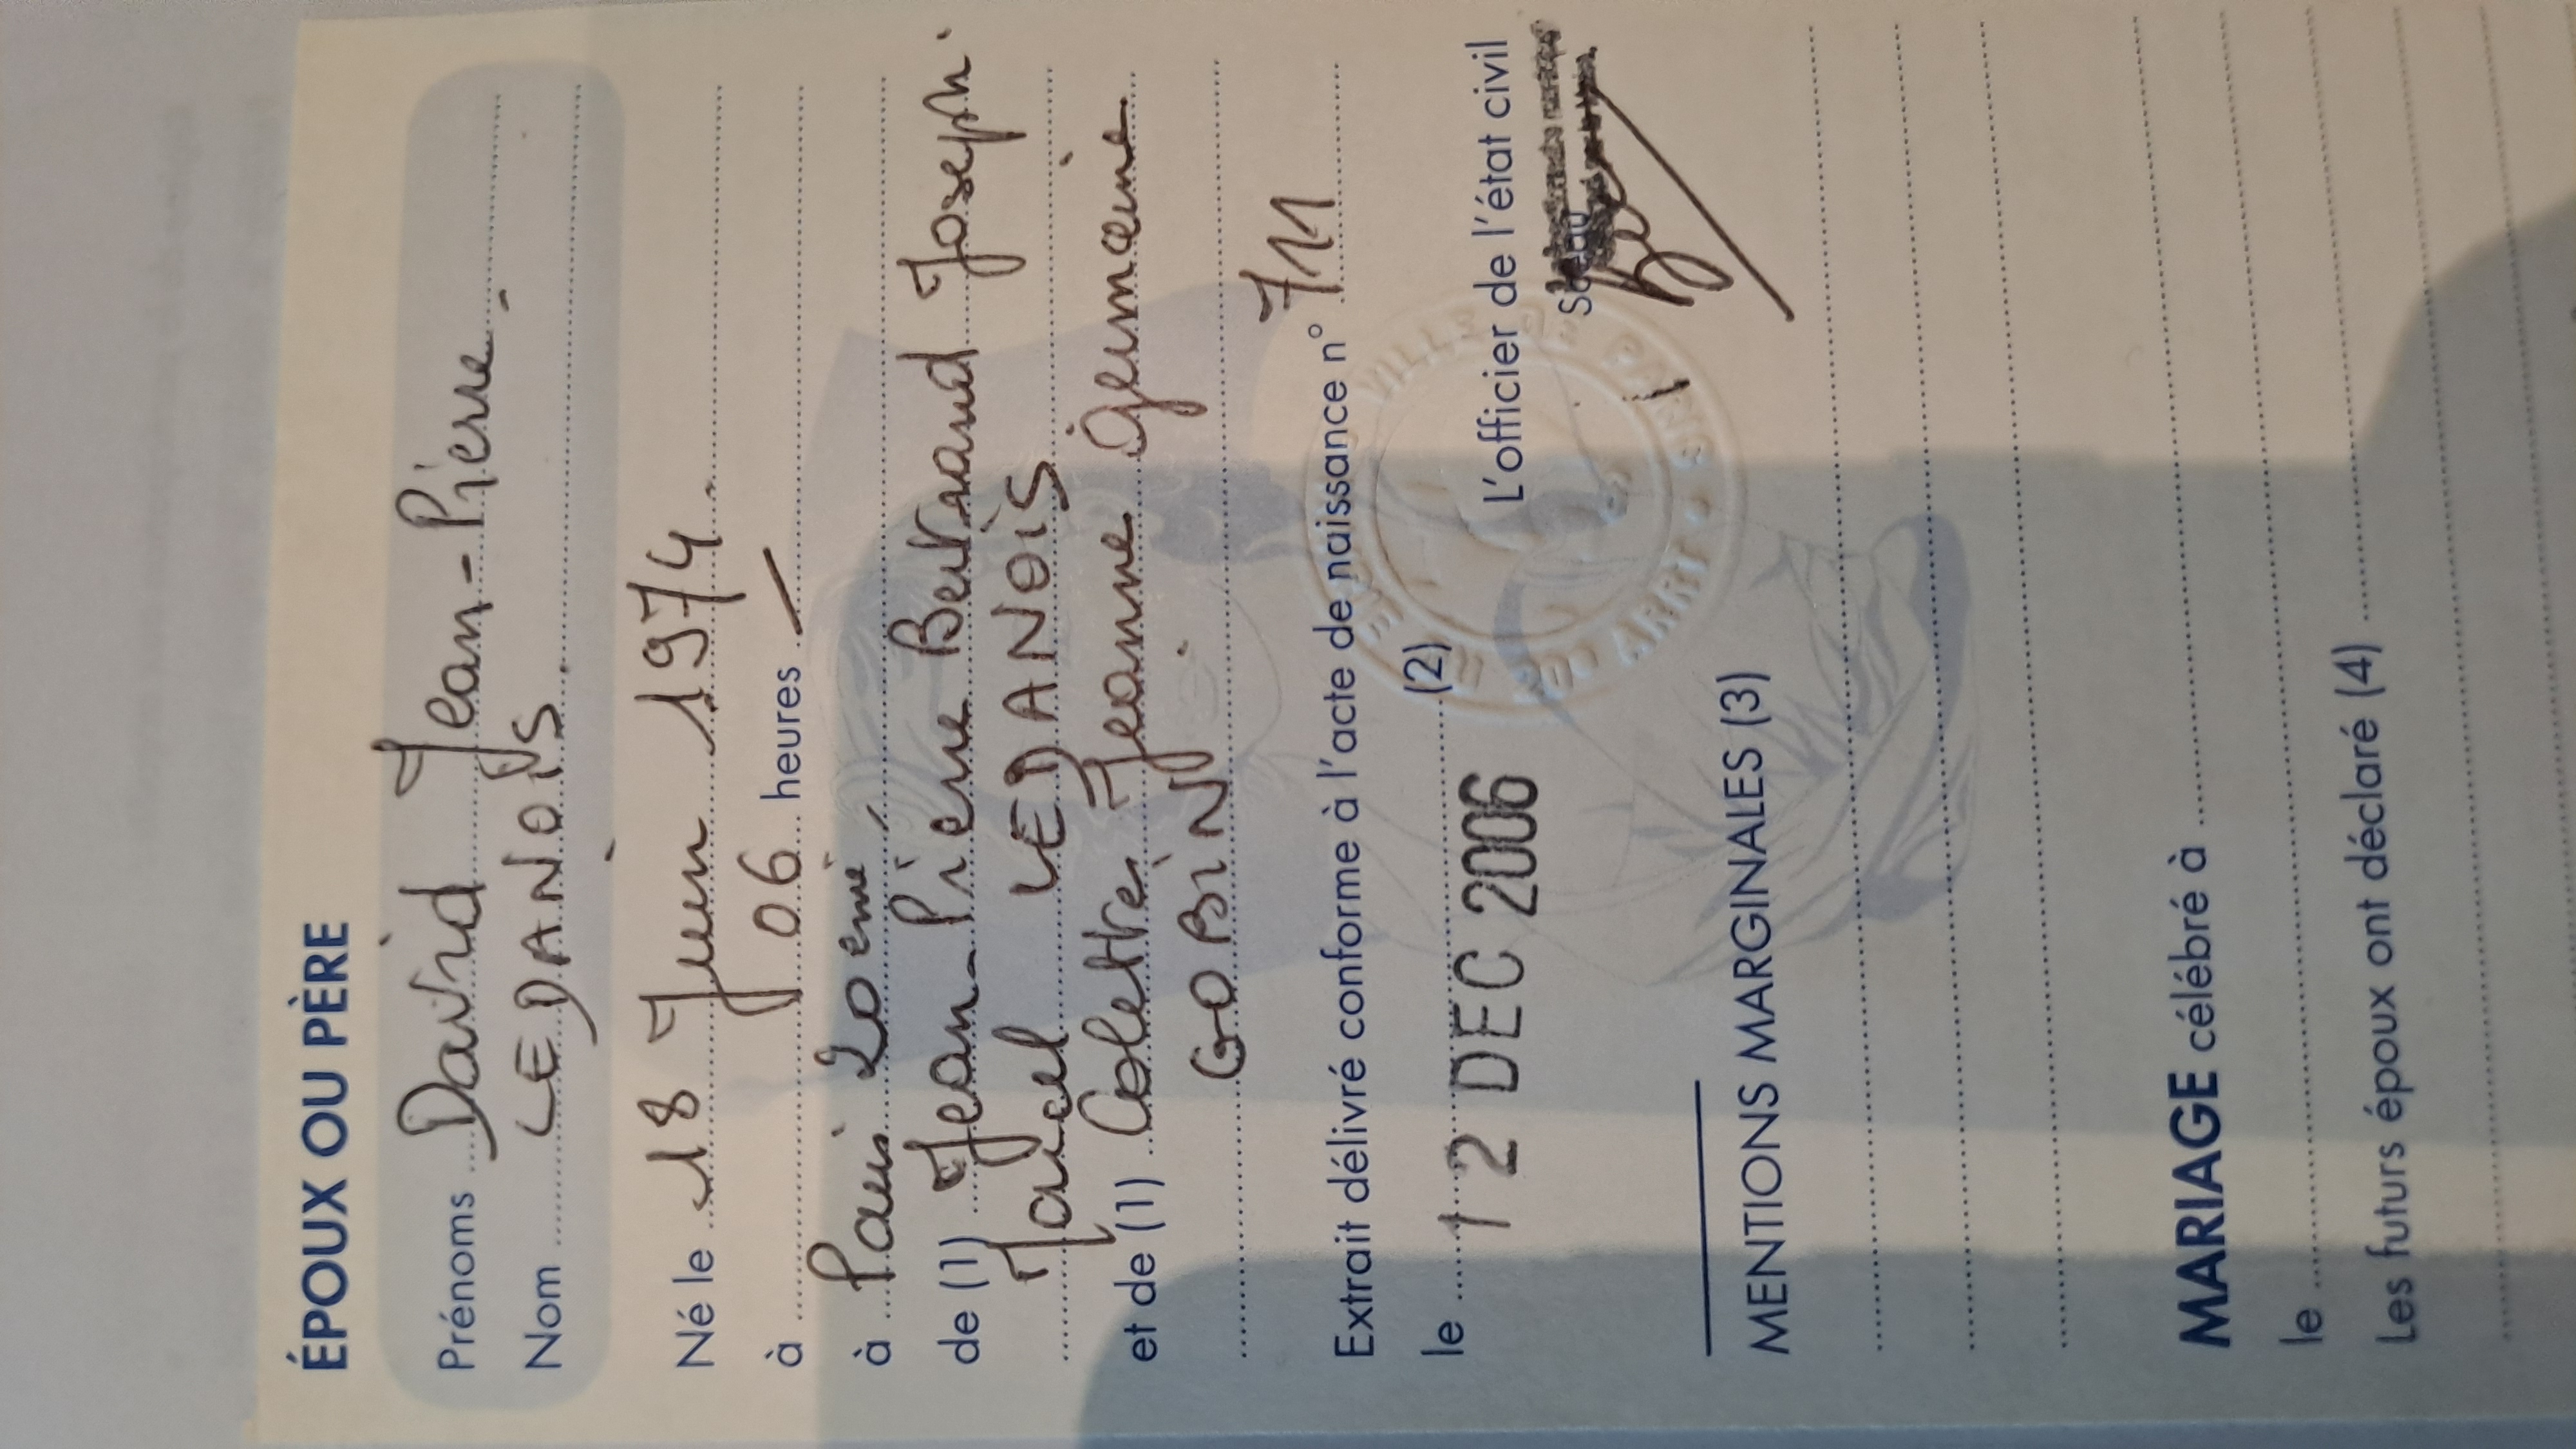 ÉPOUX OU PÈRE
Prénoms David Jean-Pierre
Nom LEDANOIS
Né le 18 Juin 1974
à 06 heures
à Paris 20ème
de (1) Jean-Pierre Bertrand Joseph
Marcel LEDANOIS
et de (1) Colette Jeanne Germaine
GOBIN
Extrait délivré conforme à l'acte de naissance n° 711
le 12 DEC 2006 (2)
L'officier de l'état civil
Sceau
VILLE DE PARIS
MAIRIE DU 20E ARRT
MENTIONS MARGINALES (3)
MARIAGE célébré à
le
Les futurs époux ont déclaré (4)